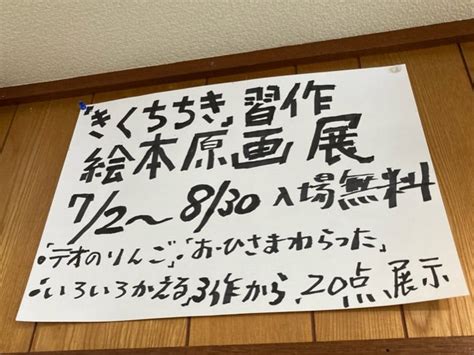 「きくちちき」習作
絵本原画展
7/2～8/30 入場無料
・「デオのりんご」・「おーひさまわらった」
・「いろいろかえる」3作から、20点、展示